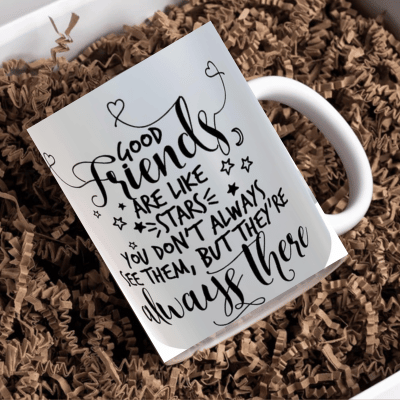 GOOD
Friends
ARE LIKE
STARS
YOU DON'T ALWAYS
SEE THEM, BUT THEY'RE
always there